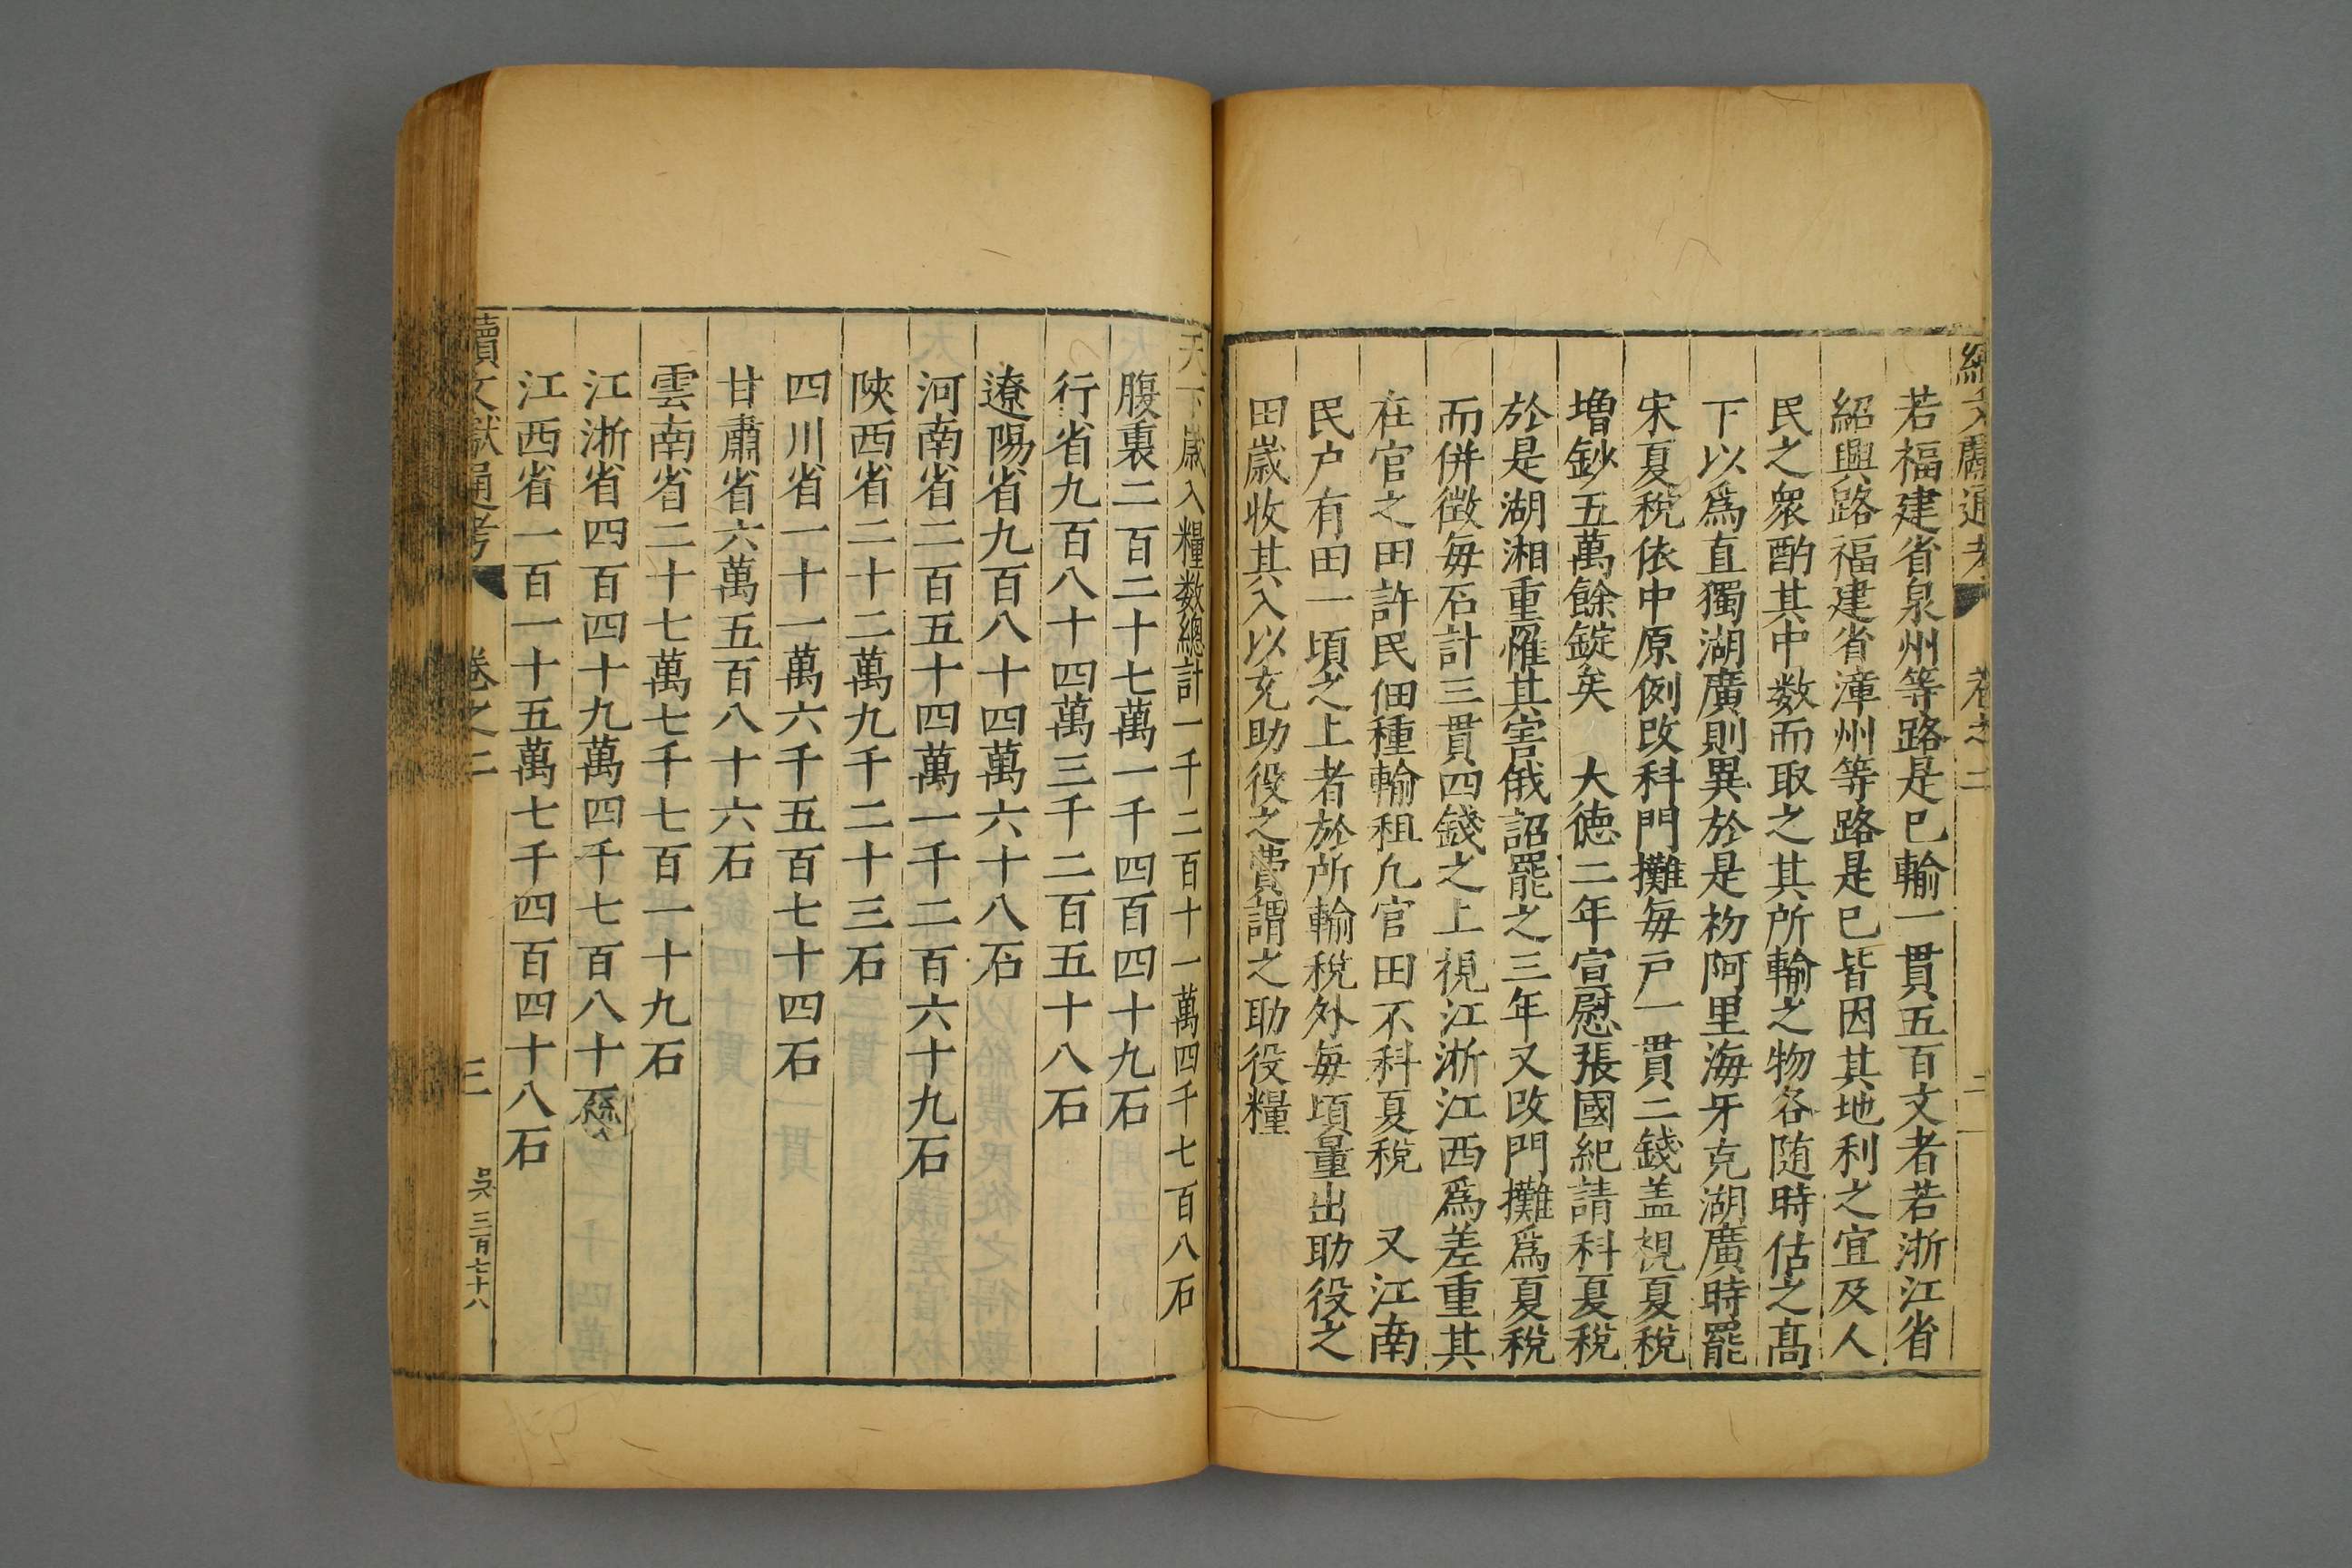 續文獻通考 卷之二 二
若福建省泉州等路是已輸一貫五百文者若浙江省
紹興路福建省漳州等路是已皆因其地利之宜及人
民之衆酌其中数而取之其所輸之物各随時估之高
下以爲直獨湖廣則異於是初阿里海牙克湖廣時罷
宋夏稅依中原例改科門攤每户一貫二錢盖視夏稅
增鈔五萬餘錠矣 大德二年宣慰張國紀請科夏稅
於是湖湘重罹其害俄詔罷之三年又改門攤爲夏稅
而併徵每石計三貫四錢之上視江浙江西爲差重其
在官之田許民佃種輸租凢官田不科夏稅 又江南
民户有田一頃之上者於所輸稅外每頃量出助役之
田嵗收其入以充助役之費謂之助役糧
天下嵗入糧数總計一千二百十一萬四千七百八石
腹裏二百二十七萬一千四百四十九石
行省九百八十四萬三千二百五十八石
遼陽省九百八十四萬六十八石
河南省二百五十四萬一千二百六十九石
陝西省二十二萬九千二十三石
四川省一十一萬六千五百七十四石
甘肅省六萬五百八十六石
雲南省二十七萬七千七百一十九石
江浙省四百四十九萬四千七百八十
江西省一百一十五萬七千四百四十八石
續文獻通考 卷之二 三 吳 三百七十八